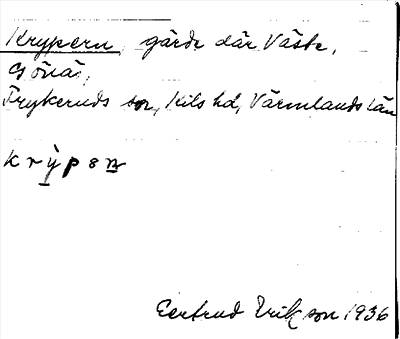 Krypern, gärde där Väste,
Frykeruds sn, Kils hd, Värmlands län
krỳpern
Gertrud Erikson 1936